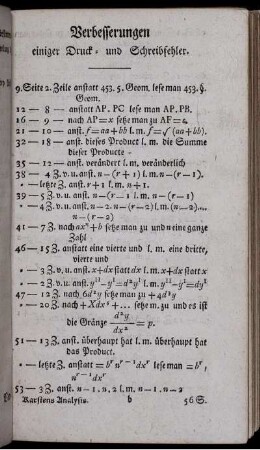 Verbesserungen
einiger Druck- und Schreibfehler.
9. Seite 2. Zeile anstatt 453. 5. Geom. lese man 453. §.
Geom.
12 — 8 — anstatt AP. PC lese man AP. PB.
16 — 9 — nach AP = x setze man zu AF = a.
21 — 10 — anst. f = aa + bb l. m. f = √(aa + bb).
32 — 18 — anst. dieses Product l. m. die Summe
dieser Producte
35 — 12 — anst. verändert l. m. veränderlich
38 — 4 Z. v. u. anst. n — (r + 1) l. m. n — (r — 1)
• — letzte Z. anst. r + 1 l. m. n + 1.
39 — 5 Z. v. u. anst. n — (r + 1) l. m. n — (r — 1)
• — 4 Z. v. u. anst. n - 2. n — (r — 2) l. m. (n — 2)....
n — (r — 2)
41 — 7 Z. nach axⁿ + b setze man zu und n eine ganze
Zahl
46 — 15 Z. anstatt eine vierte und l. m. eine dritte,
vierte und
• — 3 Z. v. u. anst. x + dx statt dx l. m. x + dx statt x
• — 2 Z. v. u. anst. yᴵᴵ — yᴵ = d²yᴵ l. m. yᴵᴵ — yᴵ = dyᴵ
47 — 12 Z. nach 6d²y setze man zu + 4d³y
• — 20 Z. nach + Xdx³ + ... setze m. zu und es ist
die Gränze d²y/dx² = p.
51 — 13 Z. anst. überhaupt hat l. m. überhaupt hat
das Product.
• — letzte Z. anstatt = bʳ nʳ⁻¹ dxʳ lese man = bʳ,
nʳ⁻¹ dxʳ
53 — 3 Z. anst. n - 1. n. 2 l. m. n - 1. n - 2
Karstens Analysis. b 56 S.